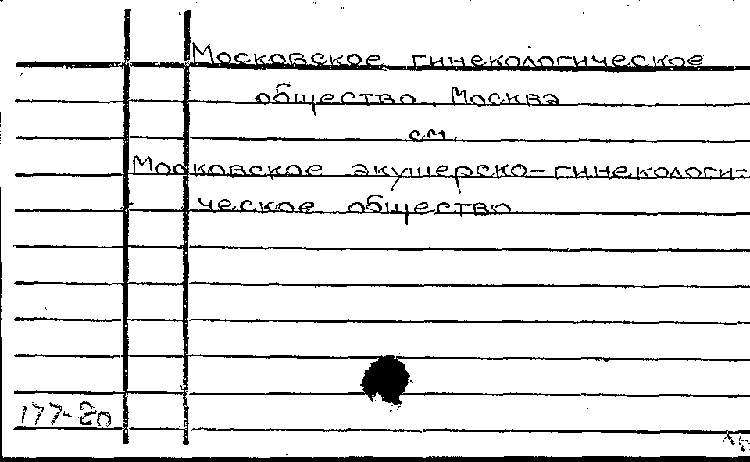 Московское гинекологическое
общество. Москва
см.
Московское акушерско-гинекологи-
ческое общество
177-80